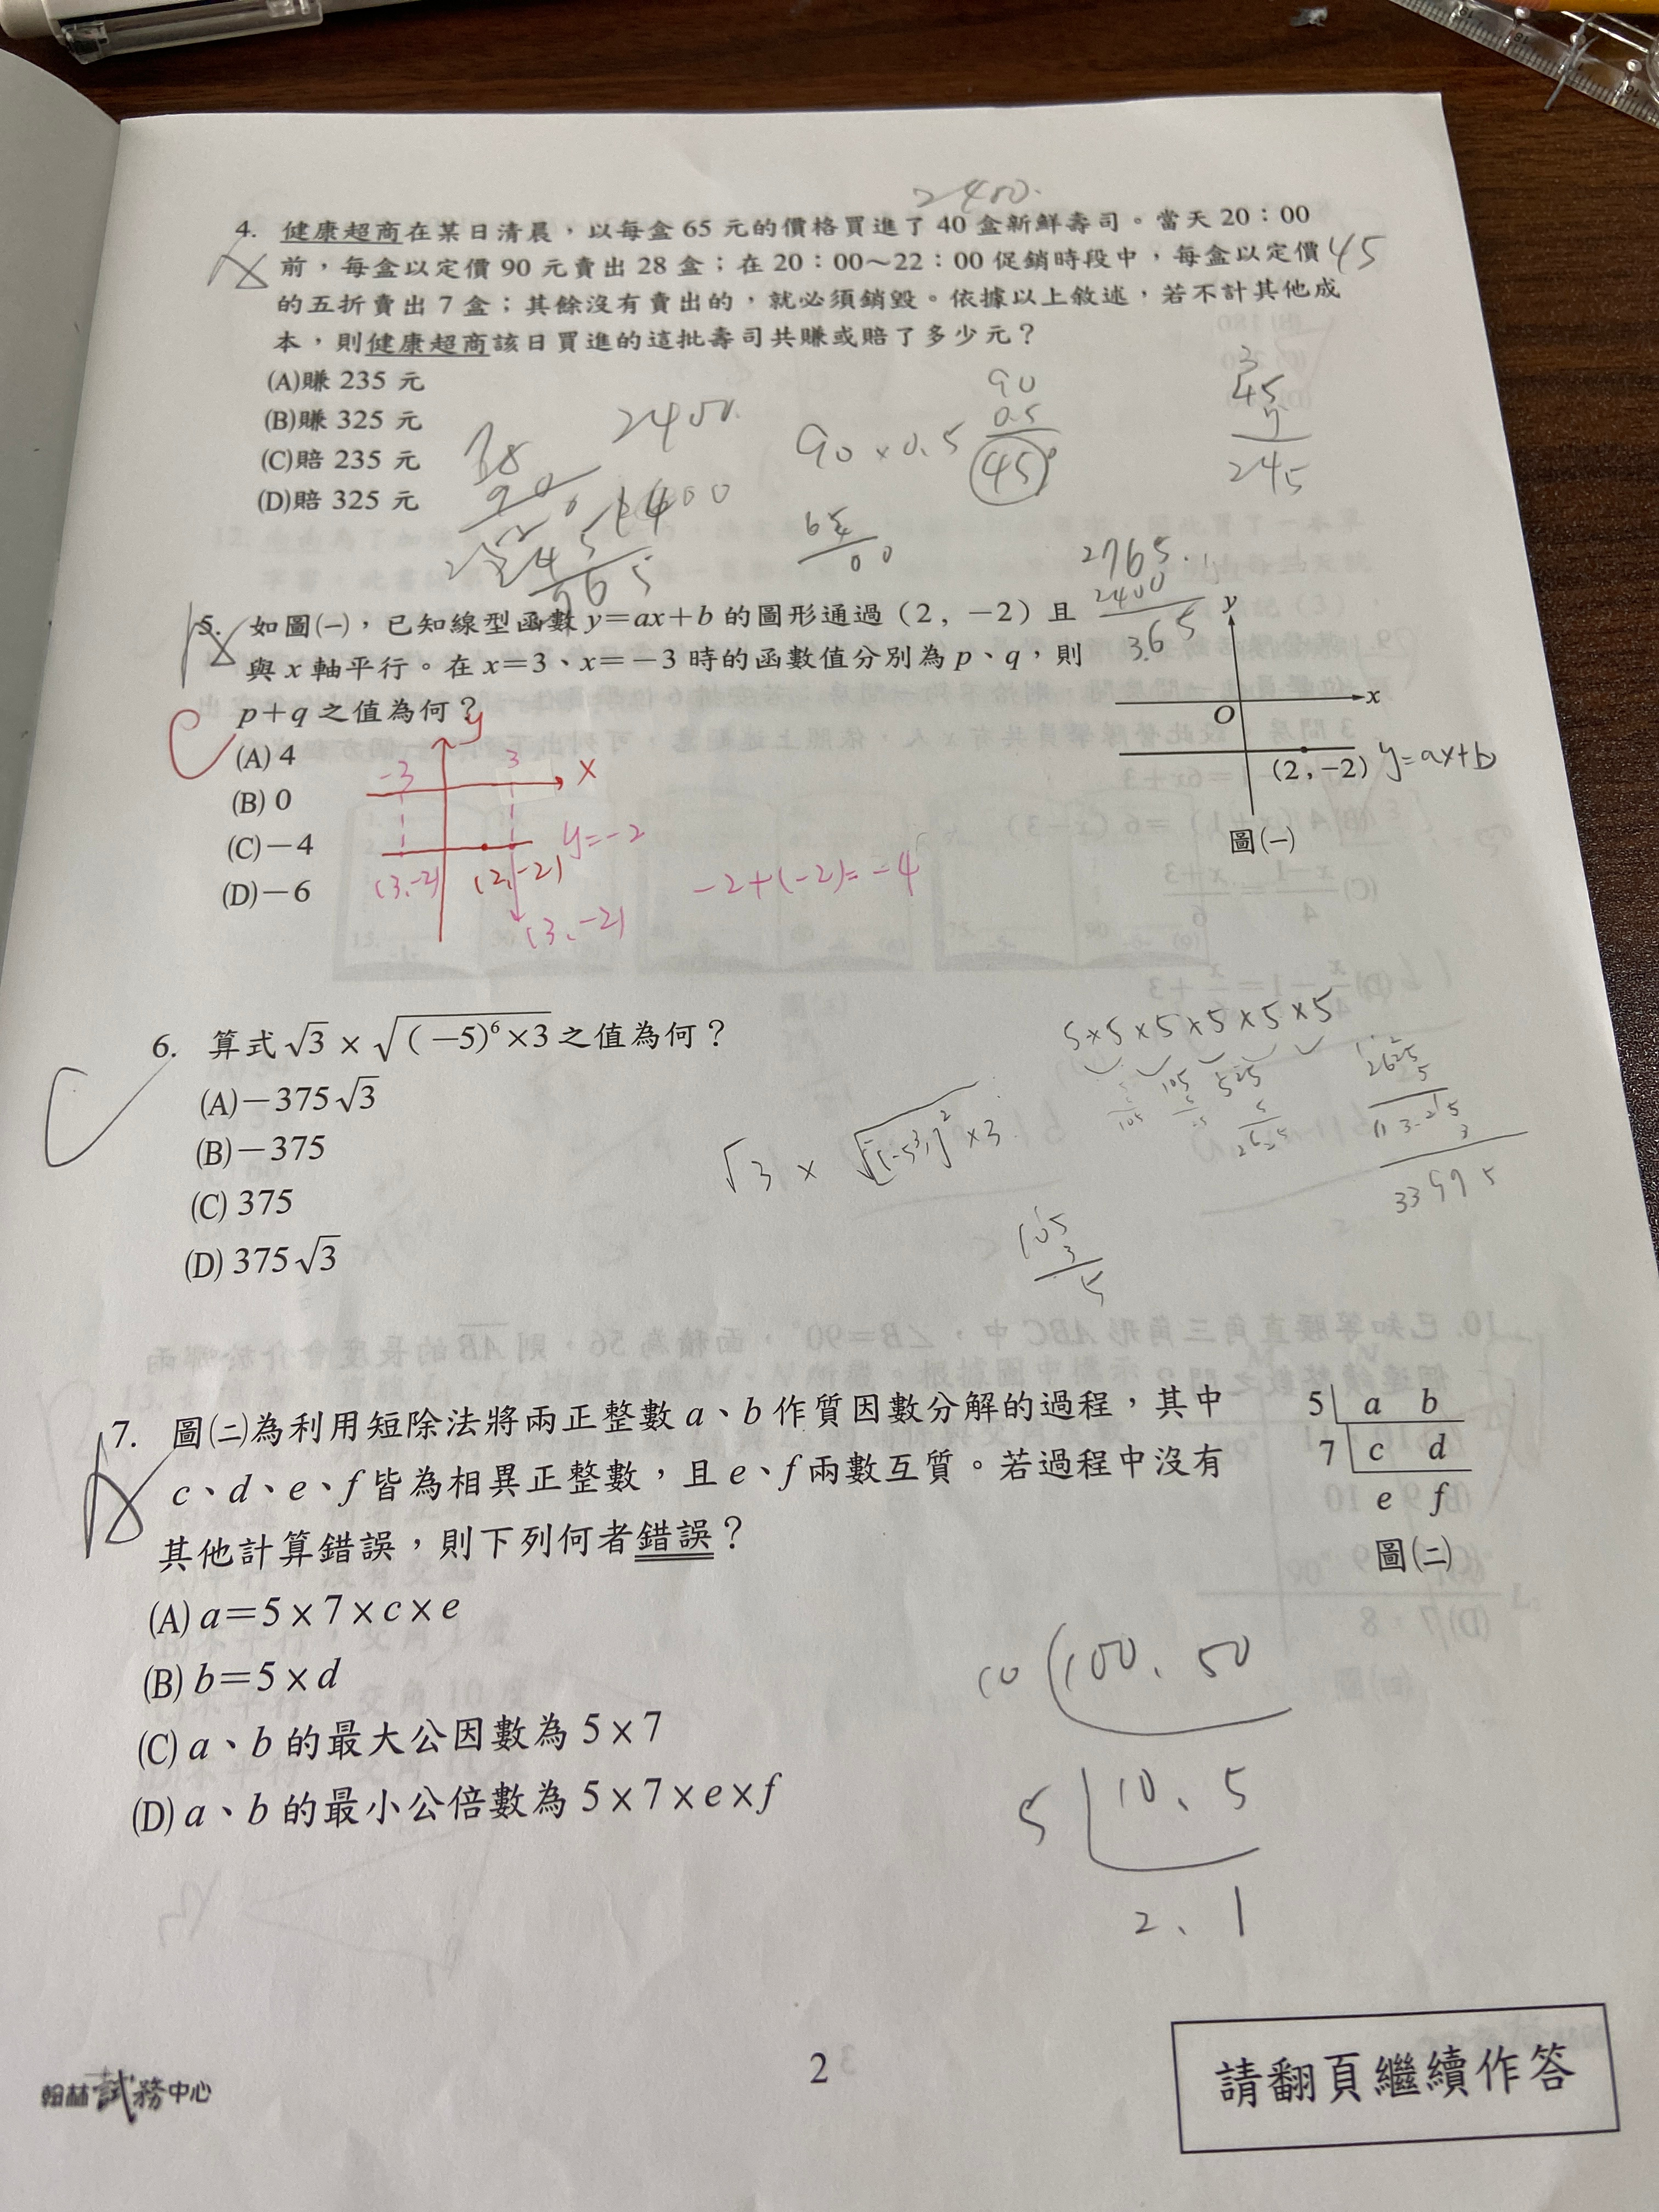 2400.
4. 健康超商在某日清晨，以每盒 65 元的價格買進了 40 盒新鮮壽司。當天 20：00
前，每盒以定價 90 元賣出 28 盒；在 20：00～22：00 促銷時段中，每盒以定價 45
的五折賣出 7 盒；其餘沒有賣出的，就必須銷毀。依據以上敘述，若不計其他成
本，則健康超商該日買進的這批壽司共賺或賠了多少元？
(A)賺 235 元
(B)賺 325 元
(C)賠 235 元
(D)賠 325 元
2400.
90×0.5
90
0.5
45
45
7
245
2765.
2400
365
A
5. 如圖(一)，已知線型函數 y=ax+b 的圖形通過（2，-2）且
與 x 軸平行。在 x=3、x=-3 時的函數值分別為 p、q，則
p+q 之值為何？
(A) 4
(B) 0
(C)-4
(D)-6
C
y
x
-3
3
y=-2
(3,-2)
(2,-2)
(3,-2)
-2+(-2)=-4
y
x
O
(2，-2)
y=ax+b
圖(一)
6. 算式 √3 × √(（-5)⁶×3) 之值為何？
(A)-375√3
(B)-375
(C) 375
(D) 375√3
C
5×5×5×5×5×5
105
3
5
7. 圖(二)為利用短除法將兩正整數 a、b 作質因數分解的過程，其中
c、d、e、f 皆為相異正整數，且 e、f 兩數互質。若過程中沒有
其他計算錯誤，則下列何者錯誤？
(A) a=5×7×c×e
(B) b=5×d
(C) a、b 的最大公因數為 5×7
(D) a、b 的最小公倍數為 5×7×e×f
A
5 a b
7 c d
e f
圖(二)
10 100、50
5 10、5
2、1
翰林試務中心
2
請翻頁繼續作答